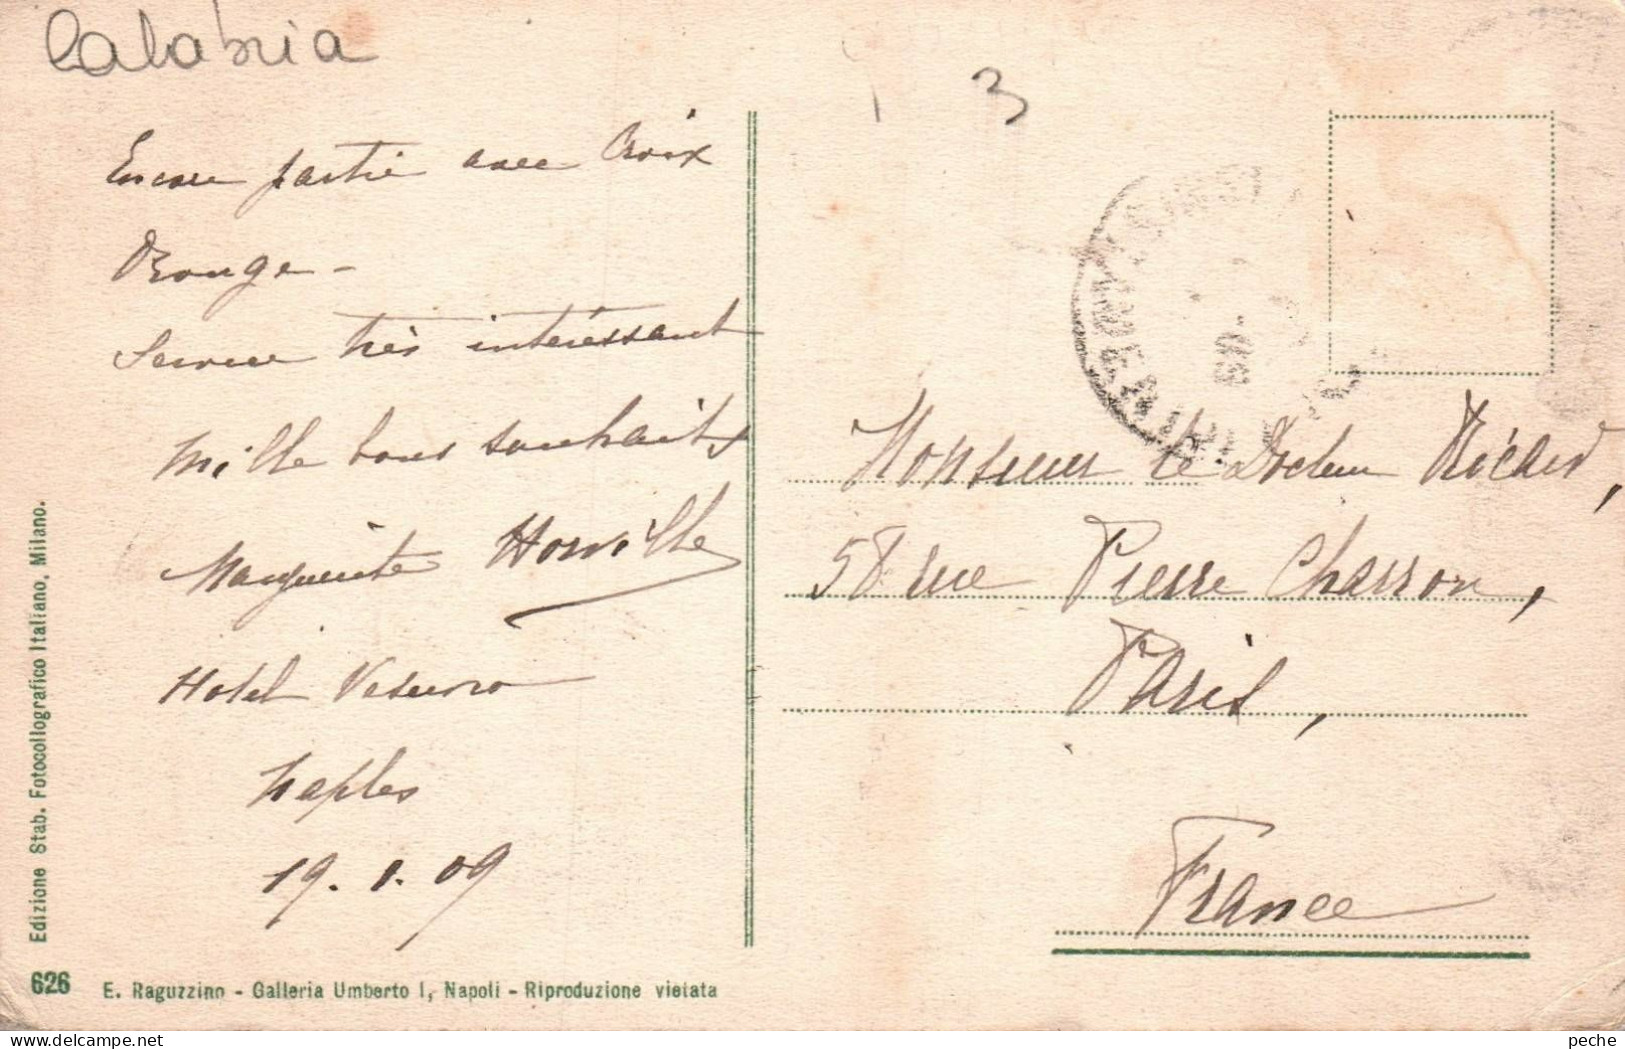 Calabria
3
Encore partie avec Croix
Rouge -
Service très intéressant
Mille bons souhaits
Marguerite Horville
Hotel Vesuvio
Naples
19. 1. 09
Monsieur le Docteur Ricard,
58 rue Pierre Charron,
Paris,
France
Edizione Stab. Fotocollografico Italiano, Milano.
626 E. Raguzzino - Galleria Umberto I, Napoli - Riproduzione vietata
delcampe.net
peche